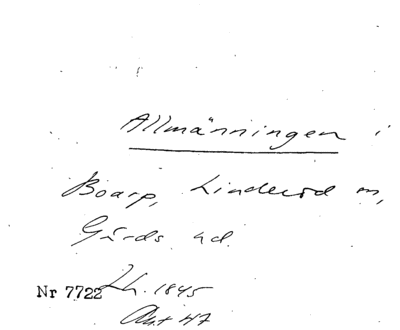 Allmänningen i
Boarp, Linderöd sn,
Gärds hd.
Lh. 1845
Nr 7722
Akt 47